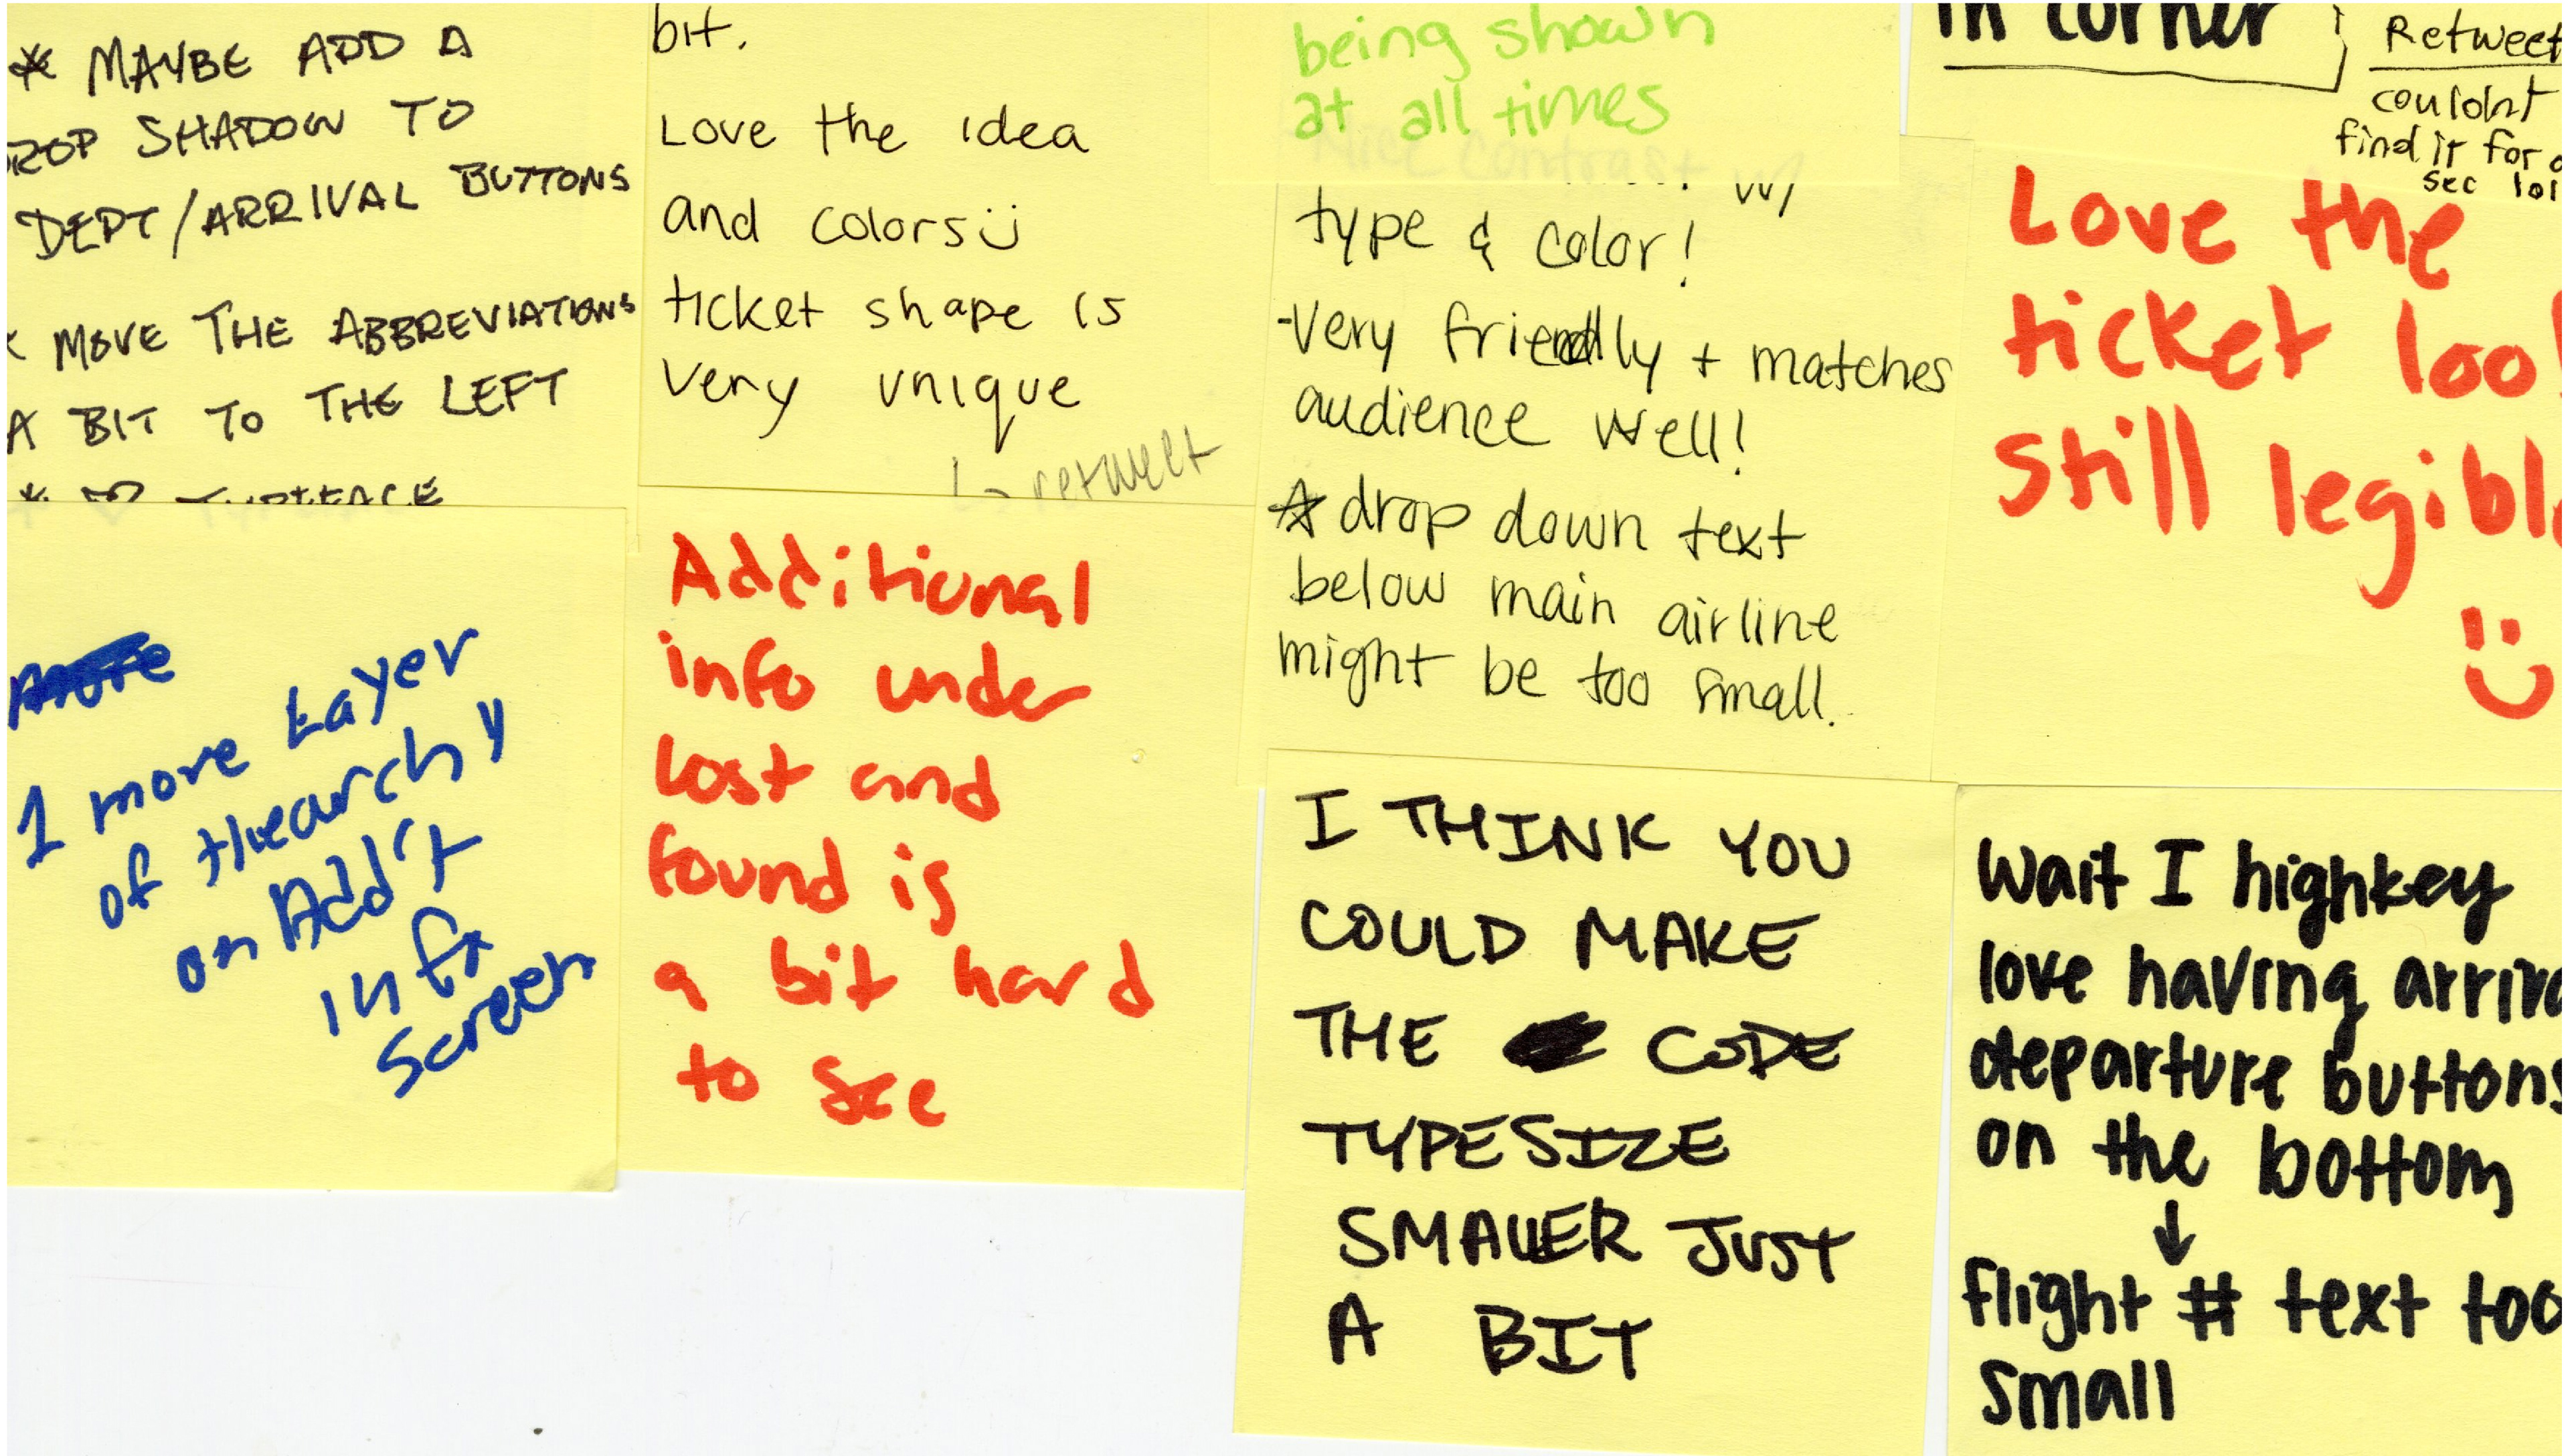 * MAYBE ADD A
ROP SHADOW TO
DEPT/ARRIVAL BUTTONS
MOVE THE ABBREVIATIONS
A BIT TO THE LEFT
* ♡ TYPEFACE
bit.
Love the idea
and colors :)
ticket shape is
very unique
↳ retweet
being shown
at all times
Nice contrast w/
type & color!
-Very friendly + matches
audience well!
☆ drop down text
below main airline
might be too small.
in corner
Retweet
couldnt
find it for a
sec lol
Love the
ticket loo
still legible
:)
more
1 more Layer
of Hiearchy
on Add't
info
screen
Additional
info under
lost and
found is
a bit hard
to see
I THINK YOU
COULD MAKE
THE CODE
TYPESIZE
SMALLER JUST
A BIT
Wait I highkey
love having arriva
departure buttons
on the bottom
↓
flight # text too
small